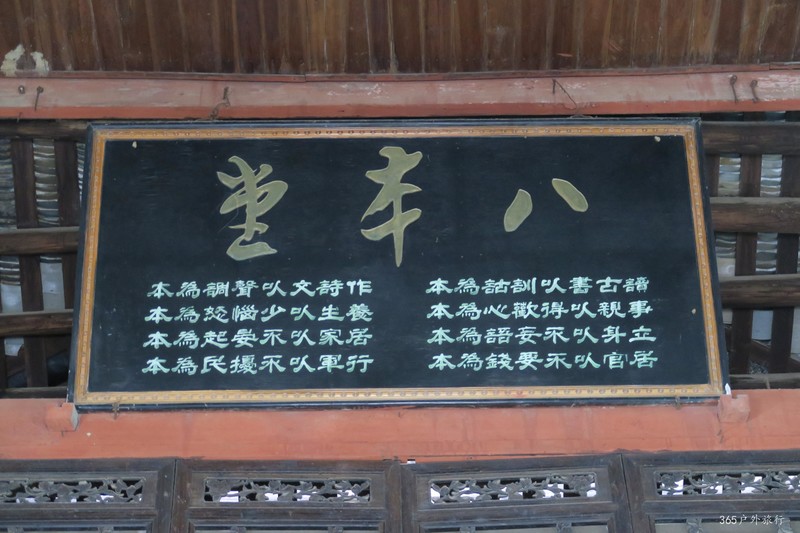 八本堂
讀古書以訓詁為本
事親以得歡心為本
立身以不妄語為本
居官以不要錢為本
作詩文以聲調為本
養生以少惱怒為本
居家以不晏起為本
行軍以不擾民為本
365户外旅行